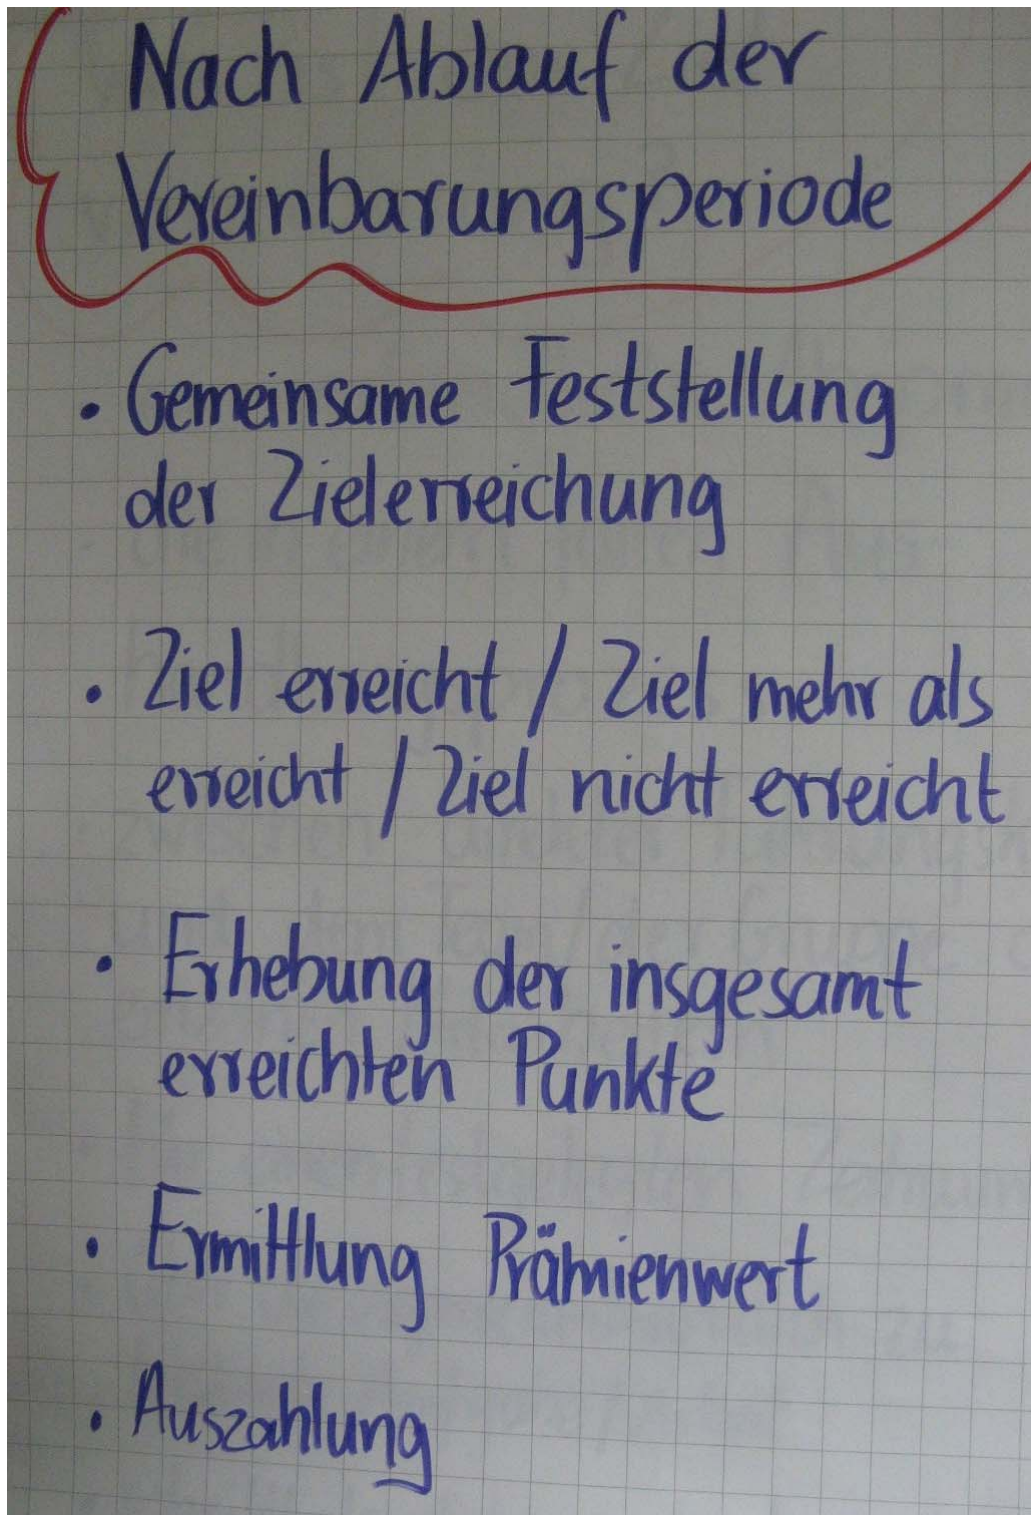 Nach Ablauf der
Vereinbarungsperiode
• Gemeinsame Feststellung
der Zielerreichung
• Ziel erreicht / Ziel mehr als
erreicht / Ziel nicht erreicht
• Erhebung der insgesamt
erreichten Punkte
• Ermittlung Prämienwert
• Auszahlung